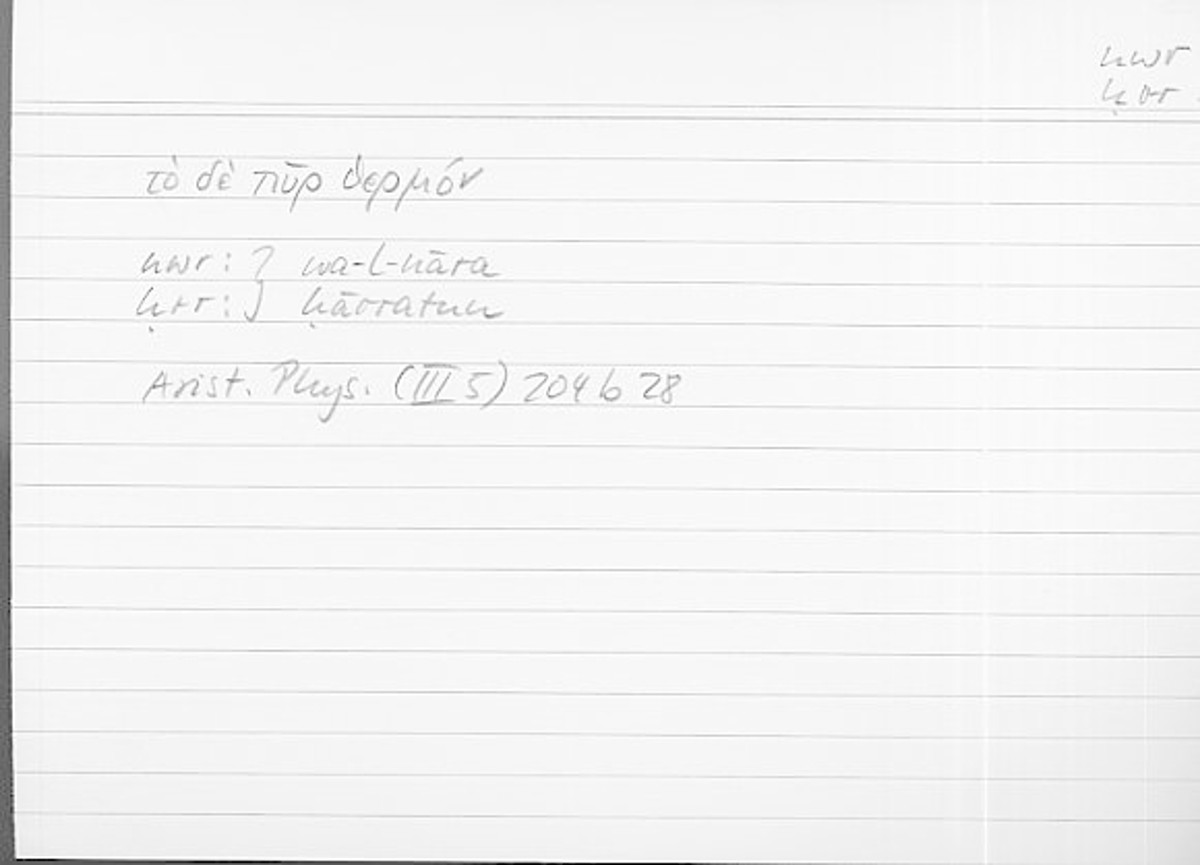 nwr
ḥrr
τὸ δὲ πῦρ θερμόν
nwr: } wa-l-nāra
ḥrr: } ḥārratun
Arist. Phys. (III 5) 204 b 28